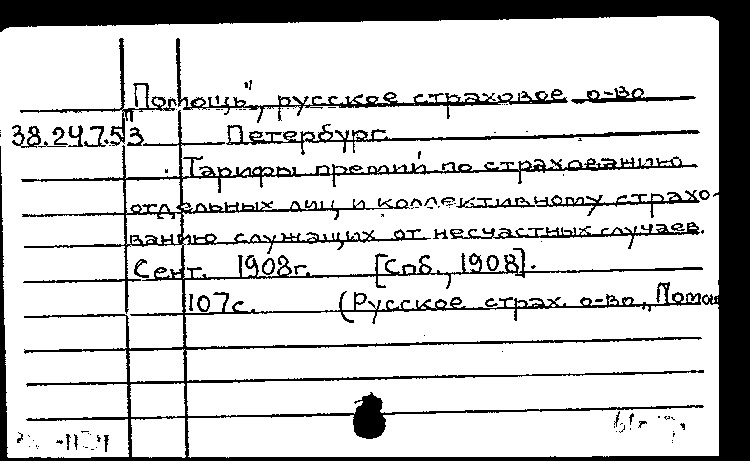 „Помощь", русское страховое о-во
38.24.7.53 Петербург.
Тарифы премий по страхованию
отдельных лиц и коллективному страхо-
ванию служащих от несчастных случаев.
Сент. 1908г. [Спб., 1908].
107с. (Русское страх. о-во „Помощ